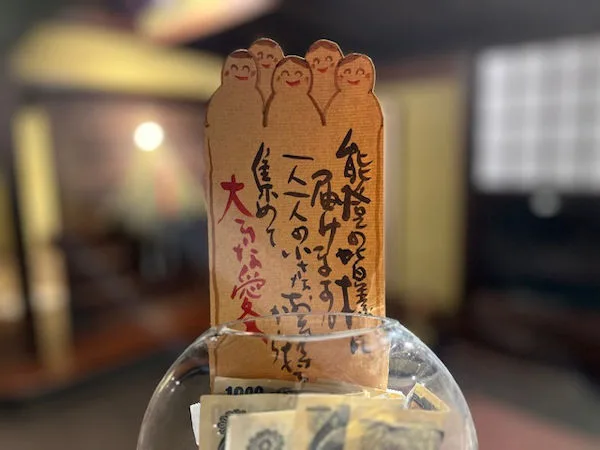 能登の皆様に
届けます。
一人一人の小さなお気持ち
集めて
大きな愛
1000